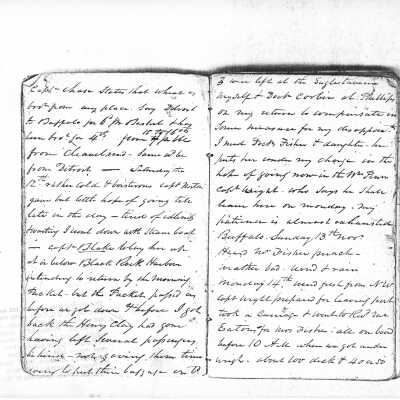 Capt. Chase States that wheat is
bro't from any place. Say Detroit
to Buffalo for 6d pr Bushel & they
have bro't for 4d
from Cleaveland. Same as be
from Detroit — Saturday the
12th rather cold & boistrous Capt Norton
gave but little hope of going till
late in the day — tired of idleness
& waiting I went down with Steam boat
— Capt Blake to lay her up
at or below Black Rock Harbor
intending to return by the morning
Packet - but the Packet passed us
before we got down & before I got
back the Henry Clay had gone
having left several passengers
behind — not giving them time
going to put their baggage on bd
I was left at the Eagle Tavern
myself & Doct at Phillips
on my return to compensate in
some measure for my disappoint
I meet Doct Fisher & daughter he
puts her under my charge in the
hope of going now in the Wm Penn
Capt Wright. who says he shall
leave here on monday. my
patience is almost exhausted
Buffalo. Sunday 13th Nov
Heard Mr Fisher preach —
weather bad. wind & rain
monday 14th wind fresh from NW
Capt Wright prepared for leaving port
took a carriage & went to
for Miss Fisher: all on board
before 10 A.M. when we got under
weigh. about 100 deck & 40 a 50